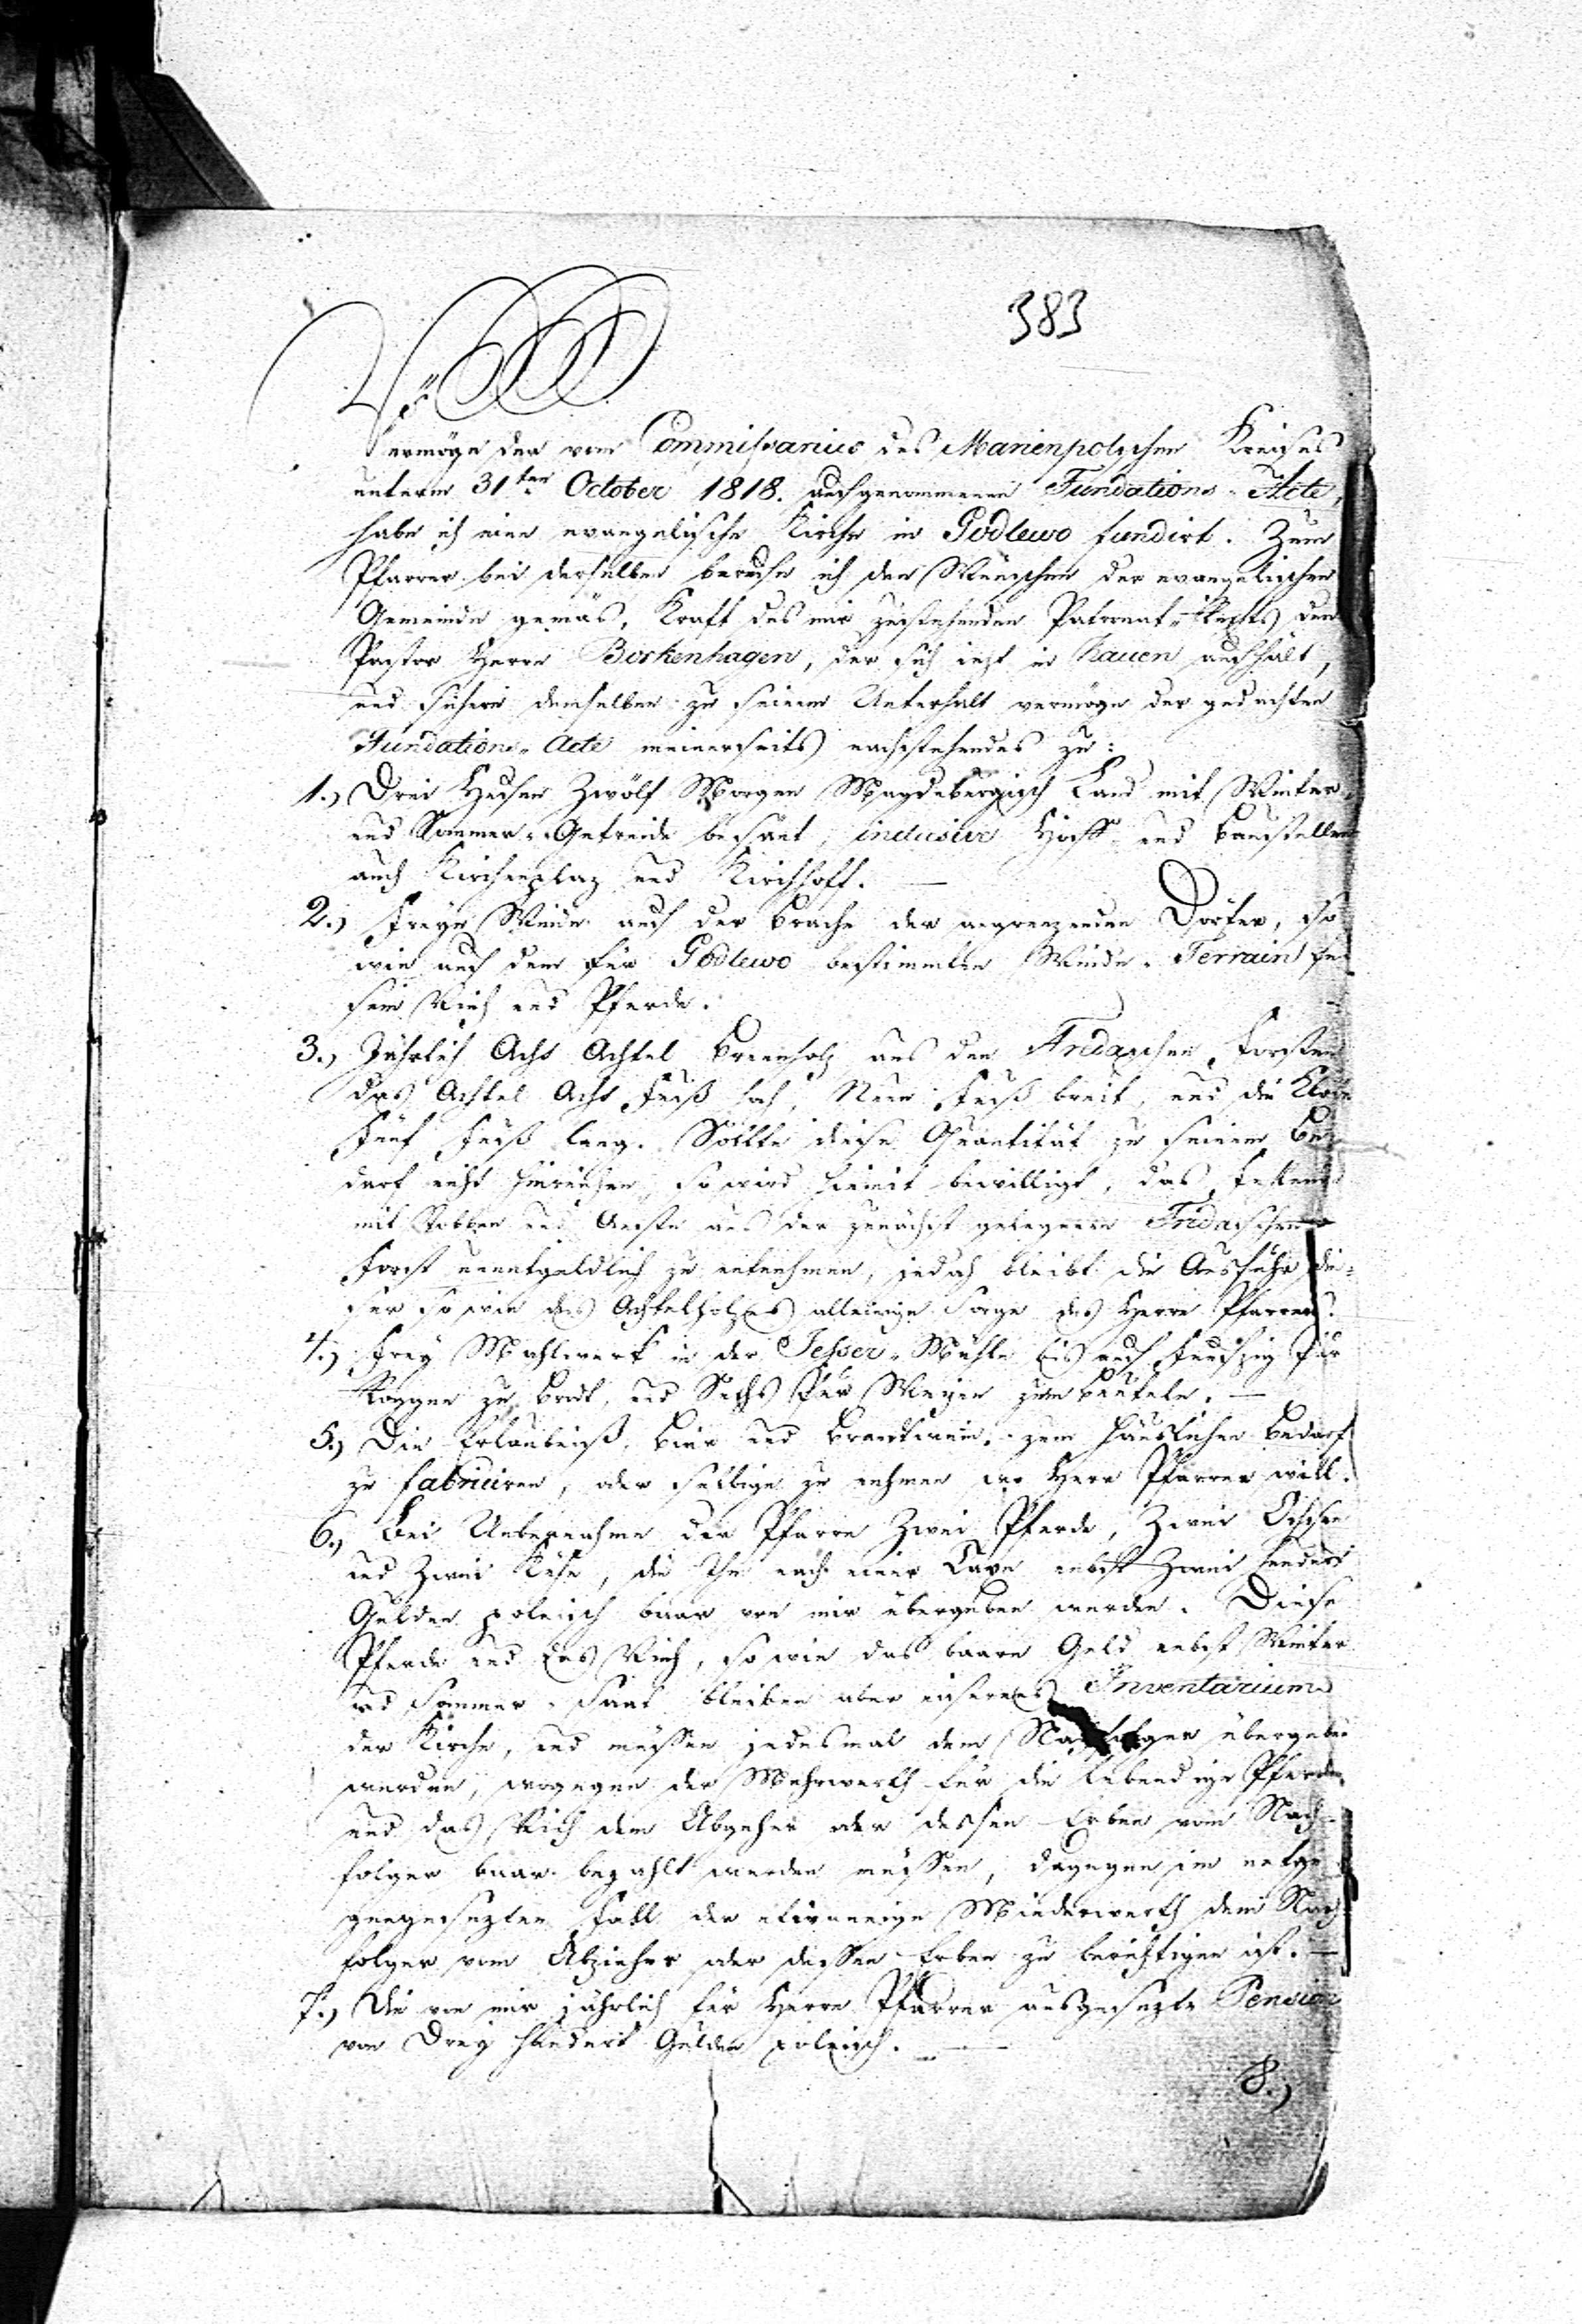 383
Vermöge der vom Commissarius des Marienpolschen Kreises
unterm 31ten October 1818. aufgenommenen Fundations-Acte,
habe ich eine evangelische Kirche in Godlewo fundirt. Zum
Pfarrer bei derselben berufe ich den Wünschen der evangelischen
Gemeinde gemäs, Kraft des mir zustehenden Patronat-Rechts den
Pastor Herrn Borkenhagen, der sich jezt in Kauen aufhält,
und sichere demselben zu seinem Unterhalt vermöge der gedachten
Fundations-Acte meinerseits nachstehendes zu:
1.) Drei Hufen Zwölf Morgen Magdeburgisch Land mit Winter-
und Sommer-Getreide besäet, inclusive Hoff- und Baustellen
auch Kirchenplaz und Kirchhoff.
2.) Freye Weide auf der Brache der angrenzenden Dörfer, so
wie auf dem für Godlewo bestimmten Weide-Terrain für
sein Vieh und Pferde.
3.) Jährlich Acht Achtel Brennholz aus den Fredaschen Forsten
das Achtel Acht Fuß hoch, Neun Fuß breit, und die Klobe
Fünf Fuß lang. Sollte diese Quantität zu seinem Be-
darf nicht hinreichen, so wird hiemit bewilligt, das fehlende
mit Stobben und Aeste aus der zunächst gelegenen Fredaschen
Forst unentgeldlich zu entnehmen, jedoch bleibt die Ausfuhr die-
ser so wie des Achtelholzes alleinige Sorge des Herrn Pfarrers.
4.) Frey Mahlwerk in der Jesser-Mühle bis auf Funfzig Pur
Roggen zu Brodt, und Sechs Pur Weizen zum beuteln.
5.) Die Erlaubniß, Bier und Brandtwein zum häuslichen Bedarf
zu fabriciren, oder selbige zu nehmen wo Herr Pfarrer will.
6.) Bei Uebernahme der Pfarre Zwei Pferde, Zwei Ochsen
und Zwei Kühe, die Ihm nach einer Taxe nebst Zwei hundert
Gulden polnisch baar von mir übergeben werden. Diese
Pferde und das Vieh, so wie das baare Geld nebst Winter
und Sommer-Saat bleiben aber eisernes Inventarium
der Kirche, und müssen jedesmal dem Nachfolger übergeben
werden, wogegen der Mehrwerth für die lebendige Pferde
und das Vieh dem Abgeher oder dessen Erben vom Nach-
folger baar bezahlt werden müssen, dagegen im entge-
gengesezten Fall der etwannige Minderwerth dem Nach-
folger vom Abzieher oder dessen Erben zu berichtigen ist.
7.) Die von mir jährlich für Herrn Pfarrer ausgesezte Pension
von Drey hundert Gulden polnisch.
8.)